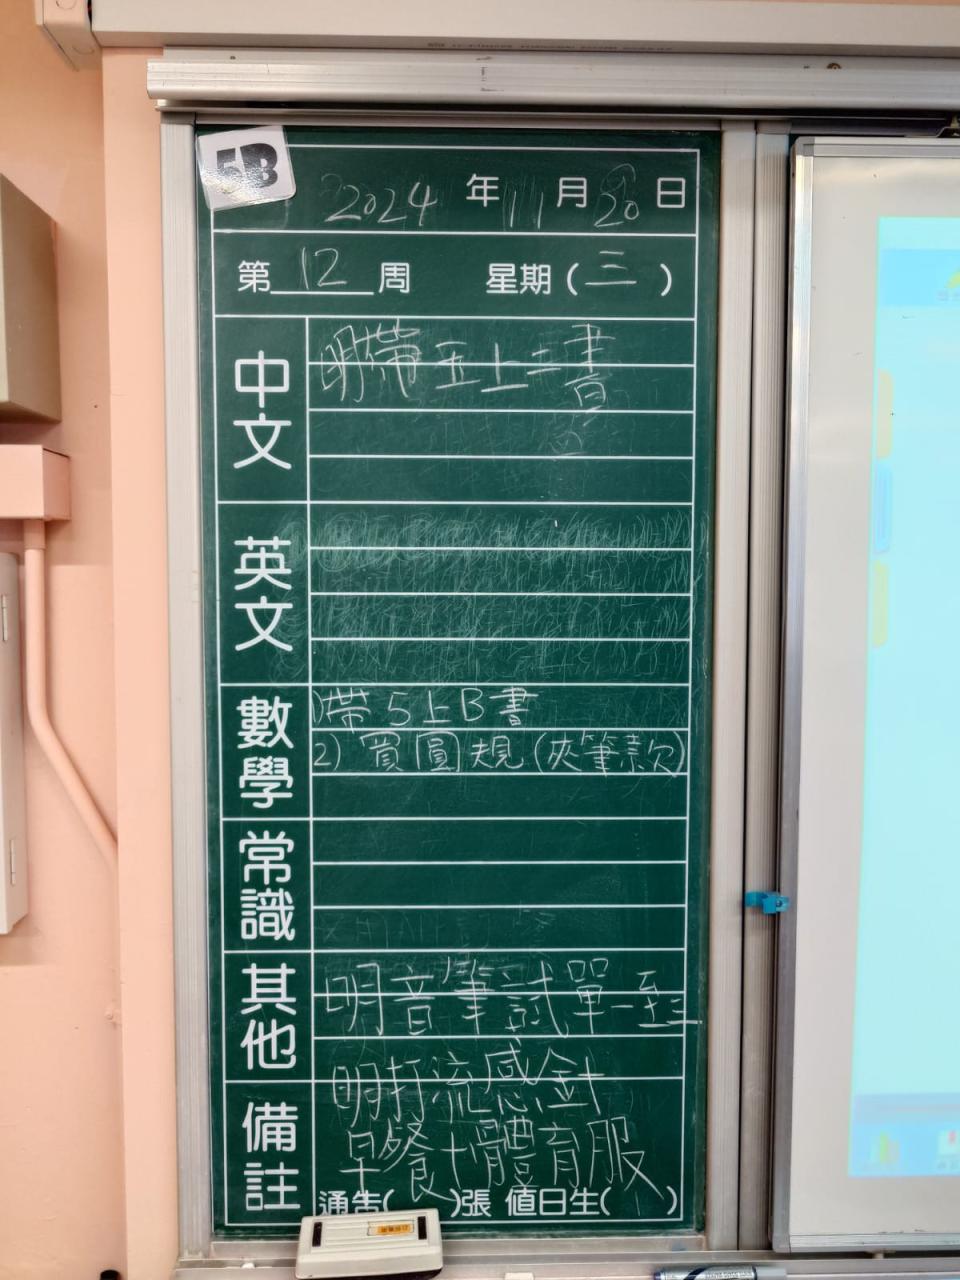 5B
2024年11月20日
第12周 星期(三)
中文 明帶五上二書
英文
數學 1)帶5上B書
2) 買圓規(夾筆款)
常識
其他 明音筆試單一至三
明打流感針
備註 早餐+體育服
通告( )張 值日生( )